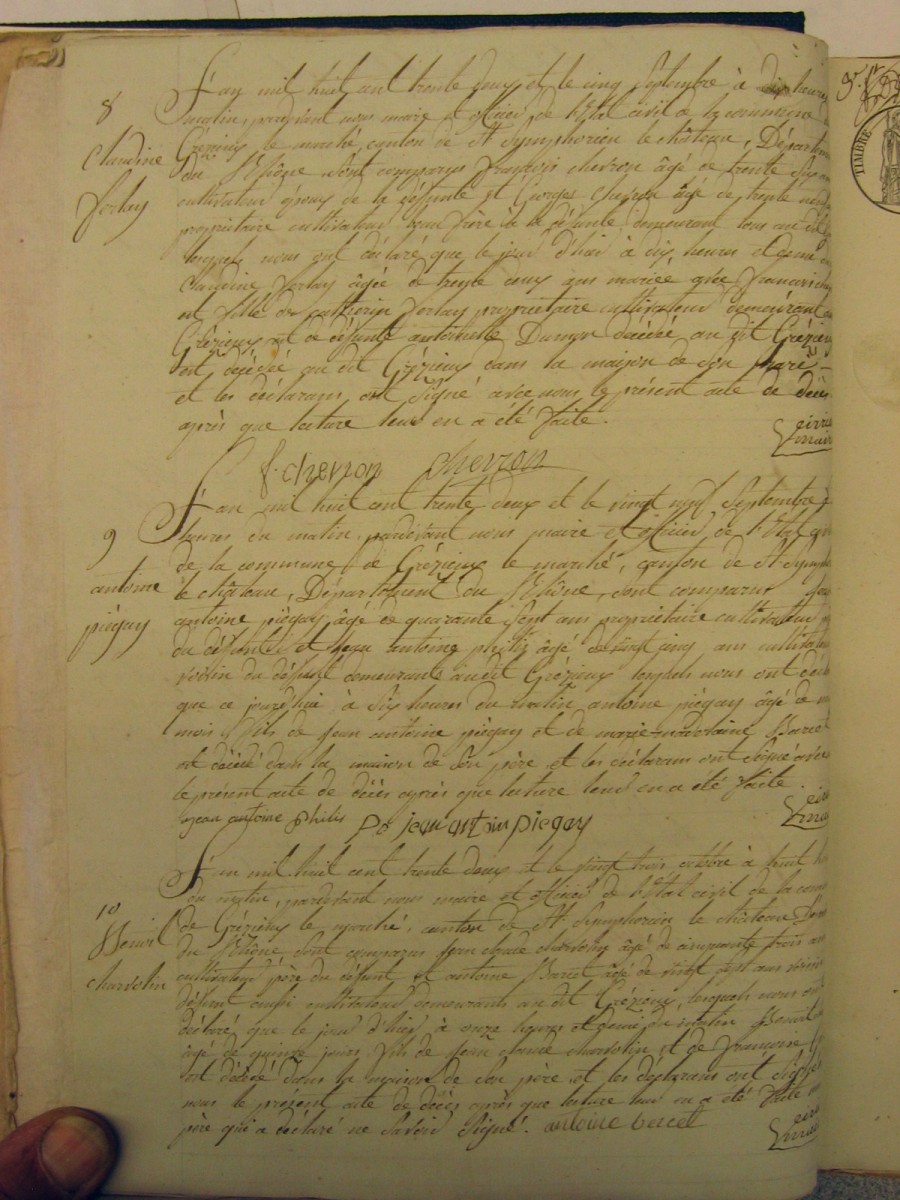 8
Claudine
Forlay
L'an mil huit cent trente deux et le cinq Septembre à dix heures
matin, pardevant nous maire et officier de l'Etat civil de la commune de
Grézieux le marché, canton de St Symphorien le château, Département
du Rhône, sont comparus François chevron âgé de trente
cultivateur époux de la défunte et Georges Chevron âgé de trente
propriétaire cultivateur beau frère à la défunte demeurant tous au dit
lesquels nous ont déclaré que le jour d'hier à dix heures et demi du
Claudine Forlay âgée de trente deux ans mariée avec François
et fille de propriétaire cultivateur demeurant
Grézieux et de défunte antoinette décédée au dit Grézieux
est décédée au dit Grézieux dans la maison de son
et les déclarans ont Signé avec nous le présent acte de décès
après que lecture leur en a été faite.
maire
f. chevron chevron
9
antoine
piégay
L'an mil huit cent trente deux et le vingt neuf Septembre à
heures du matin, pardevant nous maire et officier de l'Etat civil
de la commune de Grézieux le marché, canton de St Symph
le château, Département du Rhône, sont comparus Jean
antoine piégay âgé de quarante Sept ans propriétaire cultivateur
du défunt et Jean antoine philis âgé de vingt cinq ans cultivateur
voisin du défunt demeurants au dit Grézieux lesquels nous ont décla
que ce jourd'hui à Six heures du matin antoine piégay âgé de
mois fils de Jean antoine piégay et de marie madelaine
est décédé dans la maison de Son père et les déclarans ont Signé avec
le présent acte de décès après que lecture leur en a été faite.
maire
jean antoine philis jean antoin piegay
10
Benoit
charvolin
L'an mil huit cent trente deux et le vingt trois octobre à huit heu
du matin, pardevant nous maire et officier de l'Etat civil de la comm
de Grézieux le marché, canton de St Symphorien le château
du Rhône sont comparus Jean claude charvolin âgé de cinquante trois ans
cultivateur père du défunt et antoine âgé de vingt sept ans voisin
défunt aussi cultivateur demeurants au dit Grézieux, lesquels nous ont
déclaré que le jour d'hier à onze heures et demi du matin Benoit
âgé de quinze jours, fils de Jean claude charvolin et de Françoise
est décédé dans la maison de Son père et les déclarans ont Signé
nous le présent acte de décès après que lecture leur en a été faite
père qui a déclaré ne Savoir Signé. antoine
maire
TIMBRE